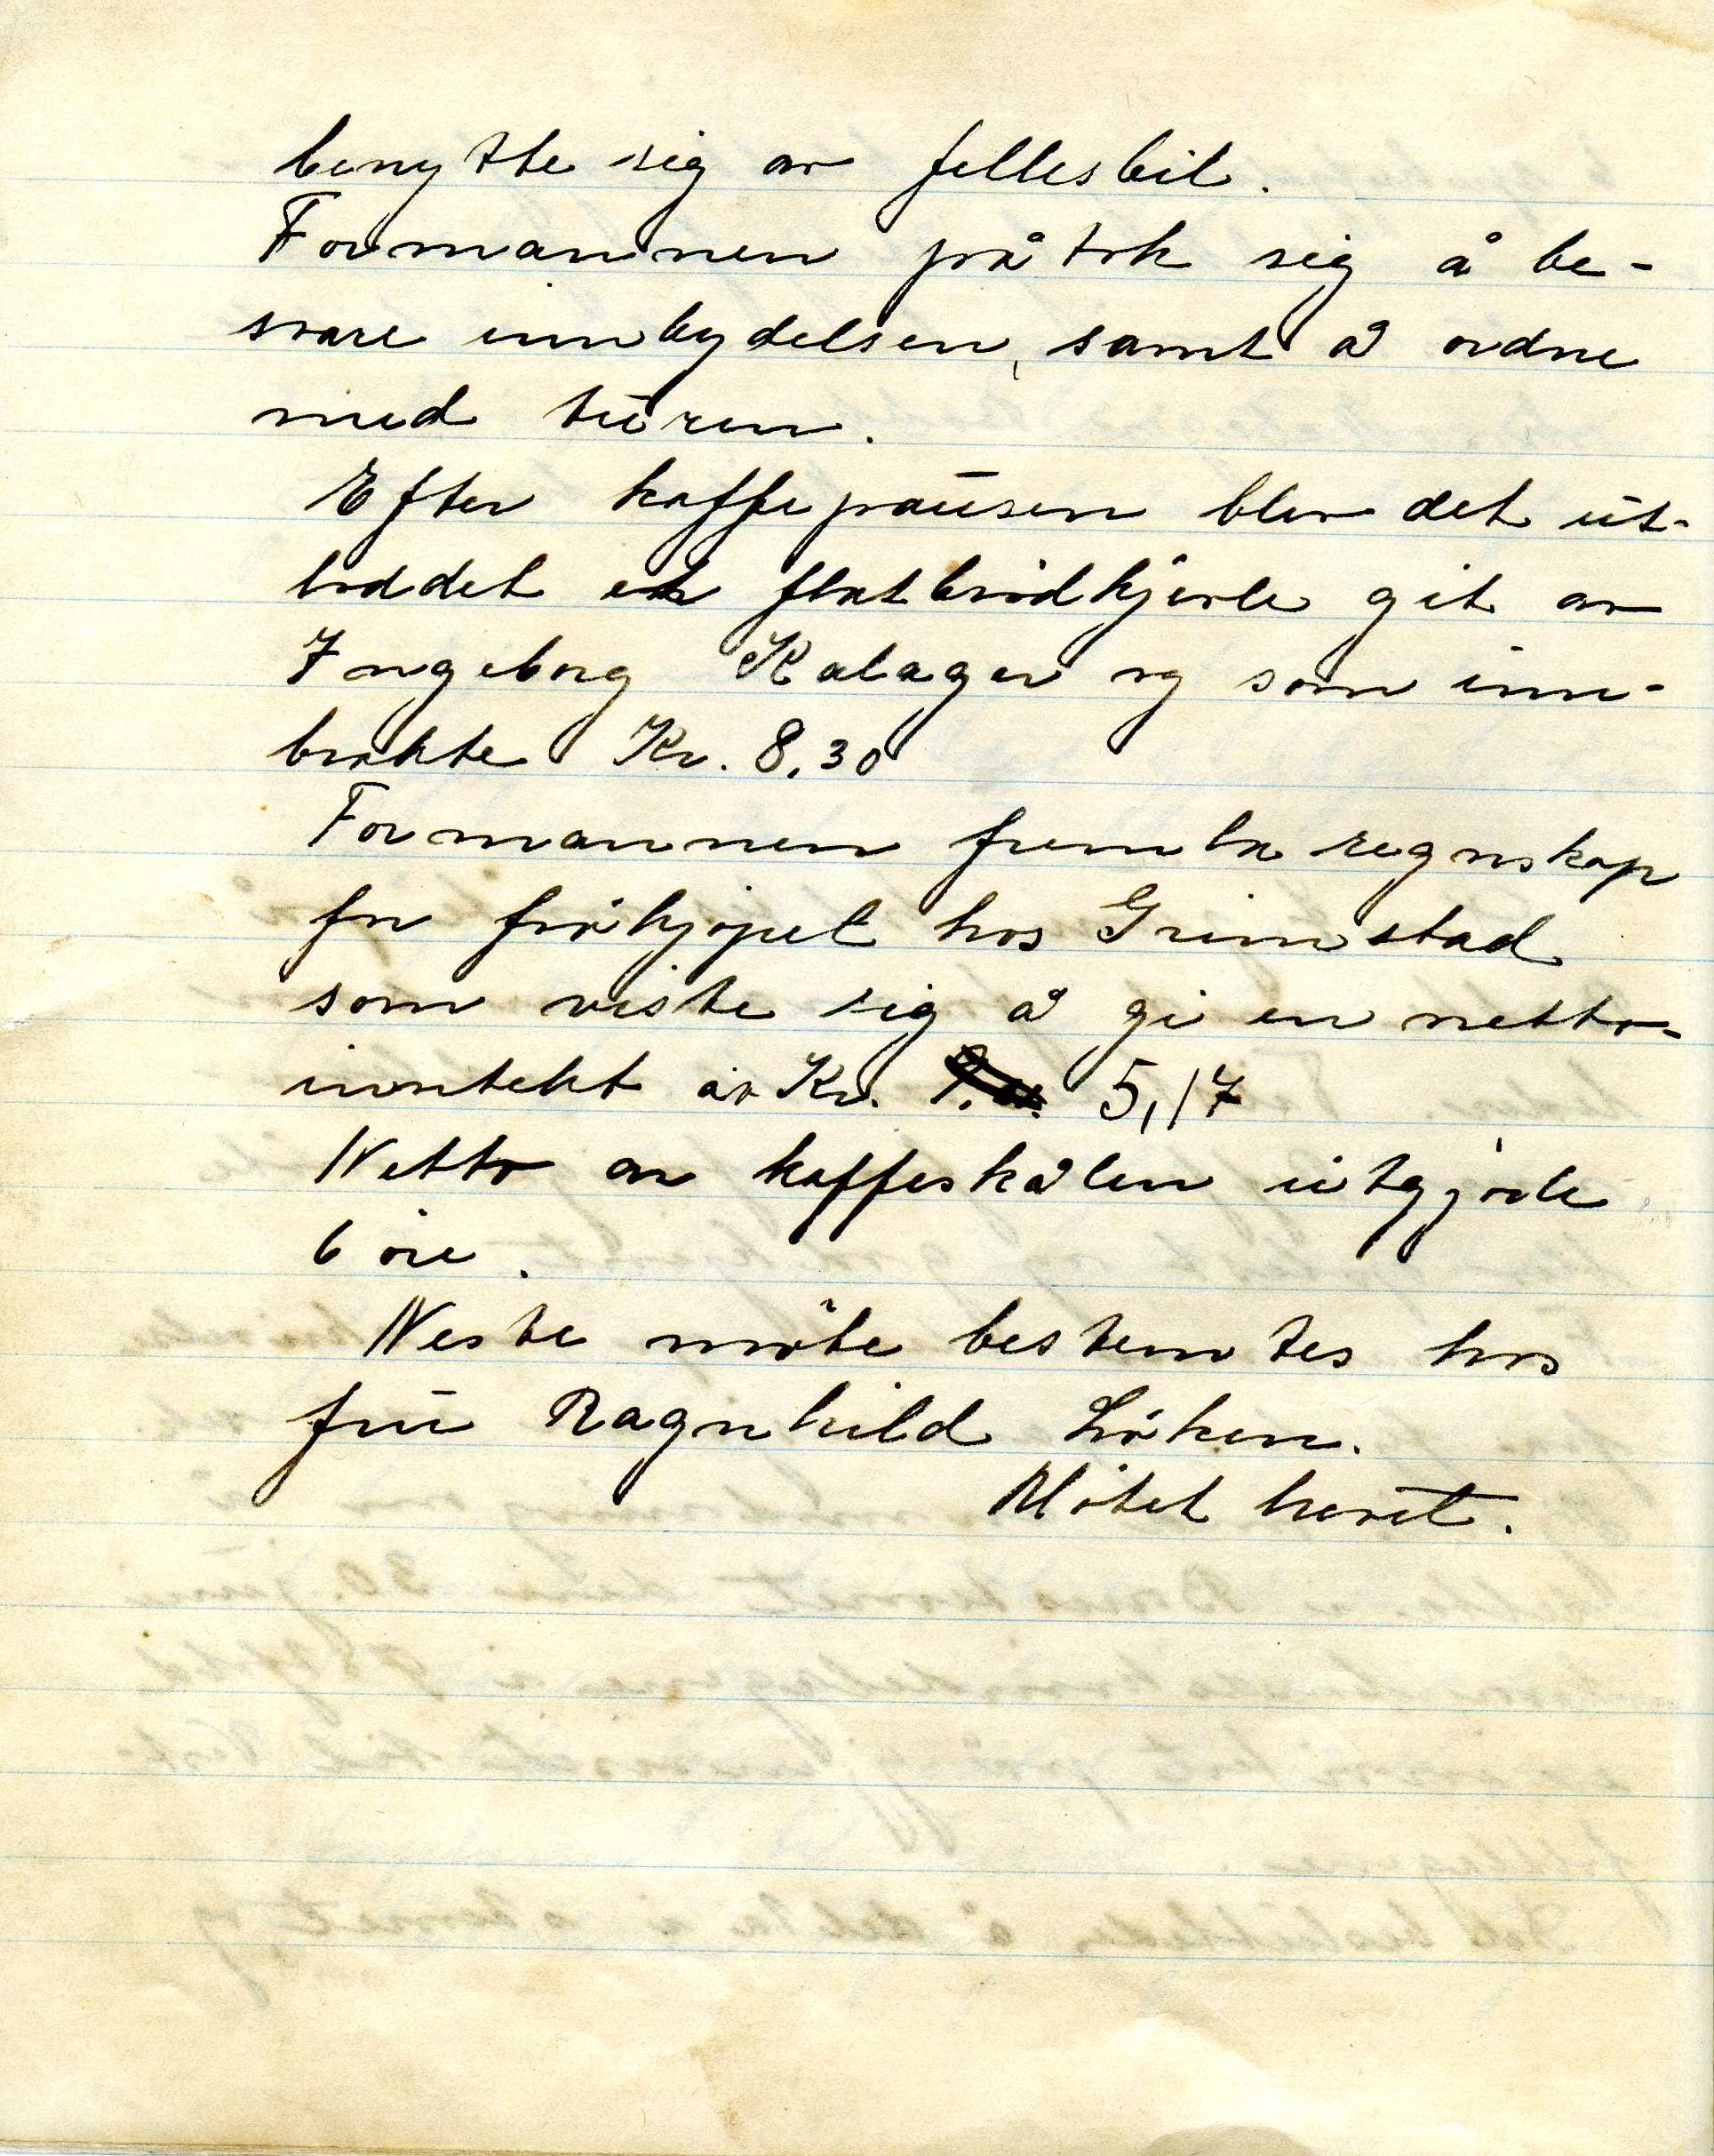 benytte sig av fellesbil.
Formannen påtok sig å be-
svare innbydelsen, samt å ordne
med turen.
Efter kaffepausen blev det ut-
loddet et flatbrødkjevle git av
Ingeborg Kalager og som inn-
brakte Kr. 8,30
Formannen fremla regnskap
for frøkjøpet hos Grimstad
som viste sig å gi en netto-
inntekt av Kr. 5,17
Netto av kaffeskålen utgjorde
6 øre.
Neste møte bestemtes hos
fru Ragnhild Løken.
Møtet hevet.